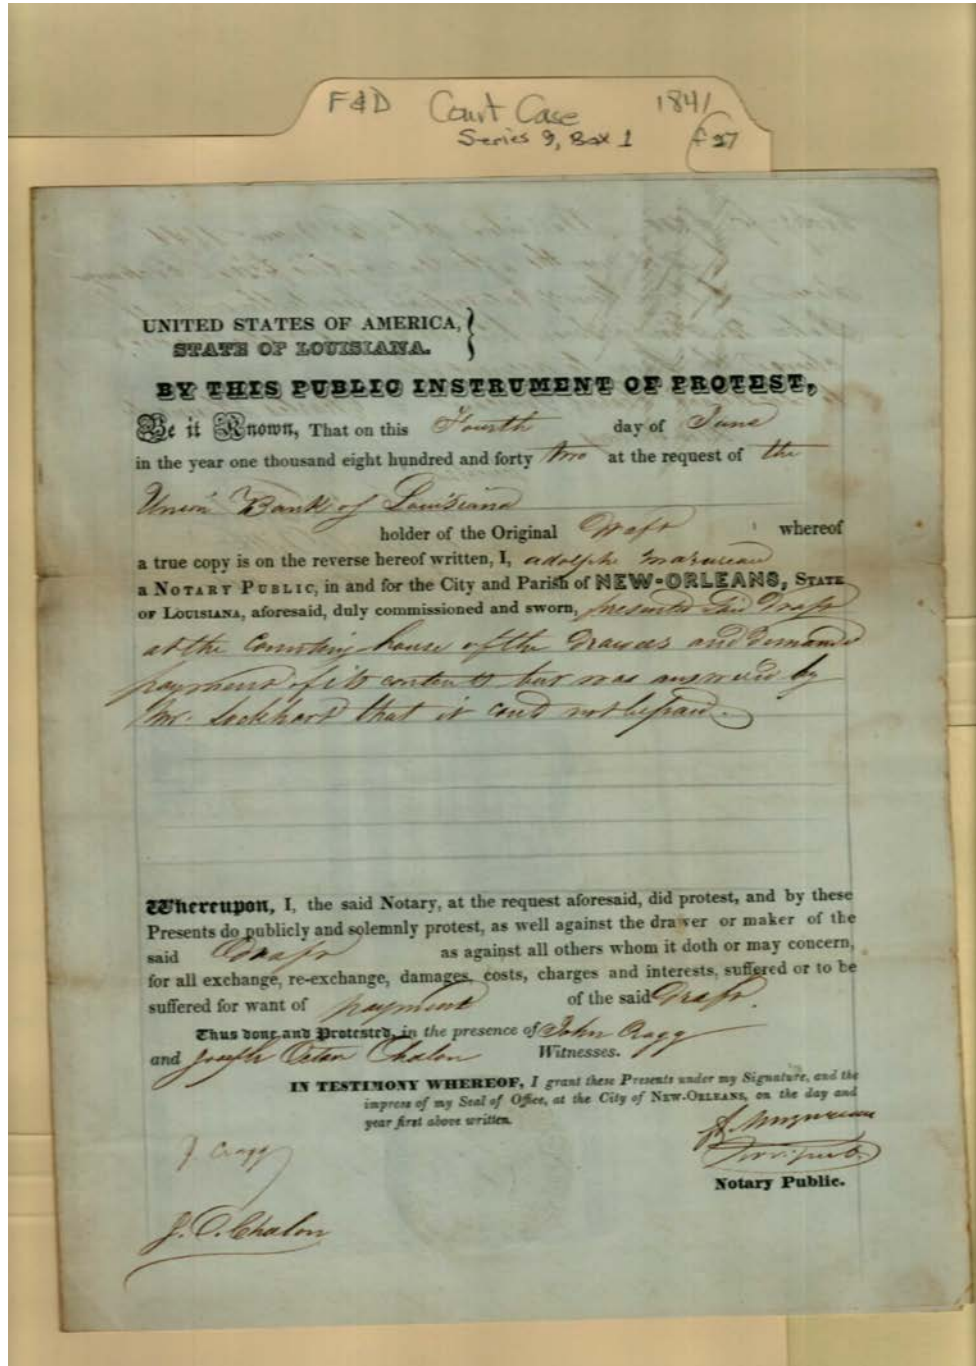 F&D Court Case 1841
Series 9, Box 1 f 27
UNITED STATES OF AMERICA,
STATE OF LOUISIANA.
BY THIS PUBLIC INSTRUMENT OF PROTEST,
Be it Known, That on this Fourth day of June
in the year one thousand eight hundred and forty two at the request of the
Union Bank of Louisiana
holder of the Original Draft whereof
a true copy is on the reverse hereof written, I, adolphe mazureau
a NOTARY PUBLIC, in and for the City and Parish of NEW-ORLEANS, STATE
OF LOUISIANA, aforesaid, duly commissioned and sworn, presented Said Draft
at the Counting house of the Drawees and demanded
payment of its contents but was answered by
Mr. Lockhart that it could not be paid.
Whereupon, I, the said Notary, at the request aforesaid, did protest, and by these
Presents do publicly and solemnly protest, as well against the drawer or maker of the
said Draft as against all others whom it doth or may concern,
for all exchange, re-exchange, damages, costs, charges and interests, suffered or to be
suffered for want of payment of the said Draft.
Thus done and Protested, in the presence of John Cragg
and Joseph Octave Chalon Witnesses.
IN TESTIMONY WHEREOF, I grant these Presents under my Signature, and the
impress of my Seal of Office, at the City of NEW-ORLEANS, on the day and
year first above written.
A. Mazureau
J Cragg
Not. Pub.
Notary Public.
J. O. Chalon